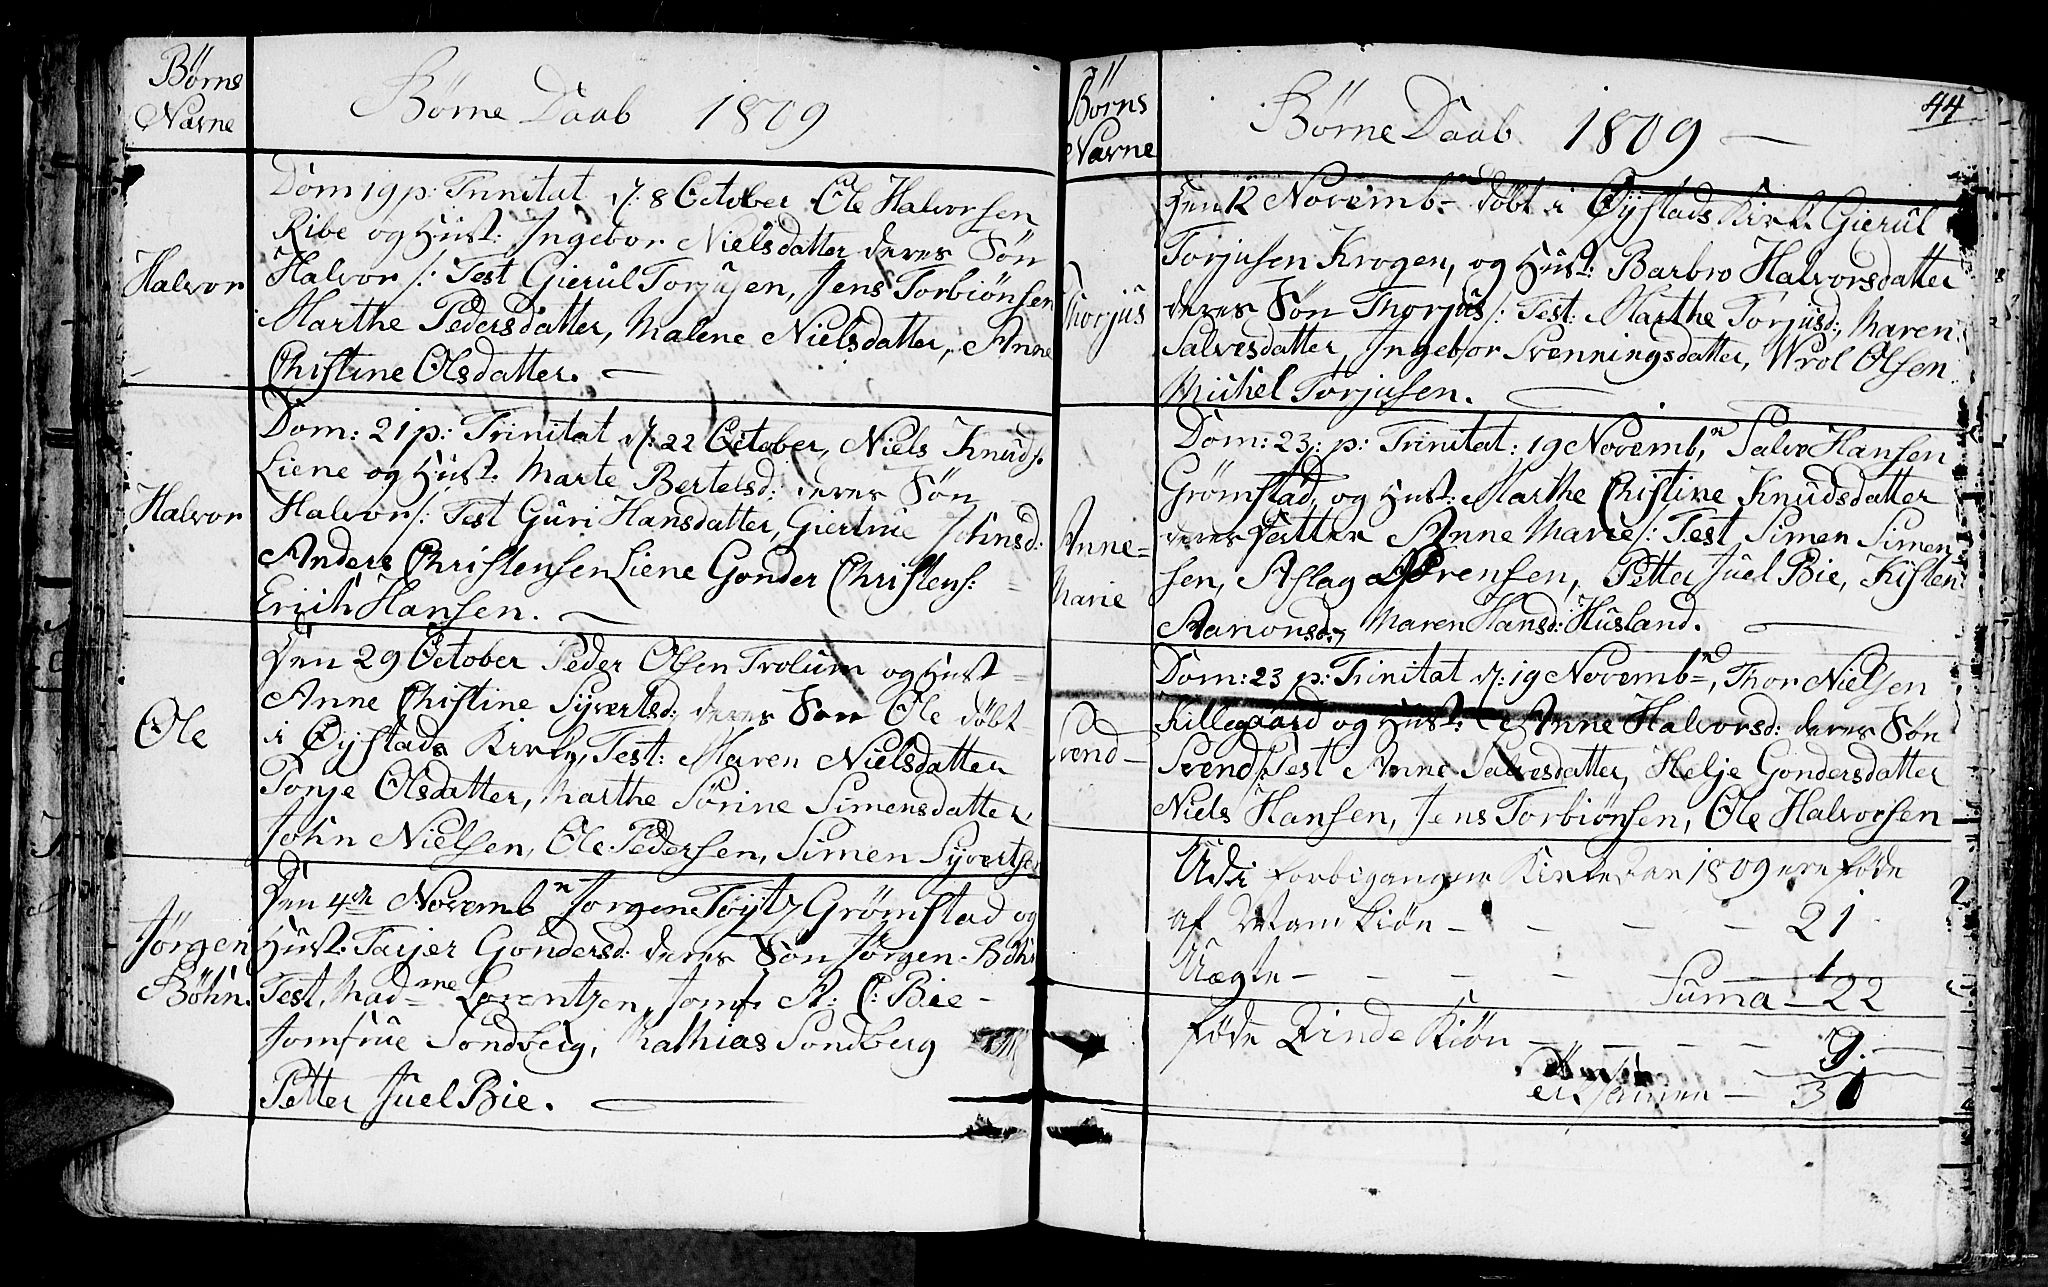 Børns
Navne
Børne Daab 1809
Halvor
Dom 19 p: Trinitat d: 8 October Ole Halvorsen
Ribe og Hust: Ingebor Nielsdatter deres Søn
Halvor /: Test Gierül Torjüsen, Jens Torbiønsen
Marthe Pedersdatter, Malene Nielsdatter, Anne
Christine Olsdatter.
Halvor
Dom: 21 p: Trinitat d: 22 October, Niels Knuds.
Liene og Hust. Marte Bertelsd: deres Søn
Halvor /: Test Güri Hansdatter, Giertrue Johnsd:
Anders Christensen Liene Gonder Christens:
Erich Hansen.
Ole
Den 29 October Peder Olsen Trolum og Hust
Anne Christine Syvertsd: deres Søn Ole døbt
i Øystads Kirke, Test: Maren Nielsdatter
Tonje Olsdatter, Marthe Sørine Simensdatter,
John Nielsen, Ole Pedersen, Simen Syvertsen
Jørgen
Bøhn.
Den 4de Novembr Jørgen Grømstad og
Hust: Tarjer Gondersd: deres Søn Jørgen Bøhn
Test, Madme Lorentzen, Jomf A: C: Bie
Jomfrue Sondberg, Mathias Sondberg
Petter Juel Bie.
44
Børns
Navne
Børne Daab 1809
Thorjüs
Den 12 Novembr døbt i Øystads Kirk. Gierül
Torjusen Krogen, og Hust: Barbro Halvorsdatter
deres Søn Thorjüs /: Test: Marthe Torjusd:, Maren
Salvesdatter, Ingebor Svenningsdatter, Wrol Olsen
Michel Torjusen.
Anne=
Marie
Dom: 23: p: Trinitat: 19 Novembr, Salve Hansen
Grømstad, og Hust: Marthe Christine Knudsdatter
deres Datter Anne Marie /: Test, Simen Simen
sen, Aslag Sørensen, Petter Juel Bie, Kisten
Aanonsd:, Maren Hansd: Husland.
Svend
Dom: 23 p: Trinitat d: 19 Novembr, Thor Nielsen
Killegaard og Hust: Anne Halvorsd: deres Søn
Svend /: Test Anne Salvesdatter, Helje Gondersdatter
Niels Hansen, Jens Torbiønsen, Ole Halvorsen
Udi forbigangne Kirke Aar 1809 ere føde
af Mand Kiøn - - - - 21
Uægte - - - - 1
Suma - 22
føde Qvinde Kiøn - - - - 9.
er Sammen - 31